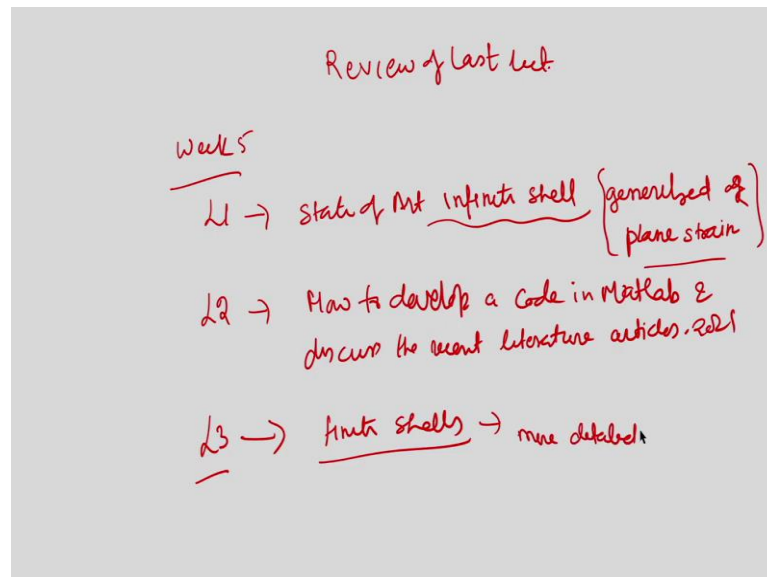 Review of Last lect.
Week 5
L1 → State of Art infinite shell { generelized of
plane strain }
L2 → How to develop a code in Matlab &
discuss the recent literature articles. 2021
L3 → finite shells → more detailed